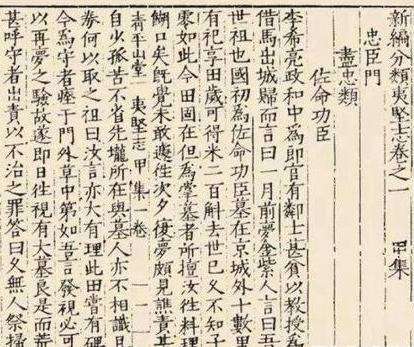 新編分類夷堅志卷之一 甲集
忠臣門
盡忠類
佐命功臣
李希亮政和中為郎官有鄰士甚貧以教授為
借馬出城歸而言曰一月前夢金紫人言曰吾
世祖也國初為佐命功臣墓在京城外十數里
有祀享田歲可得米二百斛去世已久不知子
零如此今田固在但為掌墓者所擅汝往料理
餬口矣既覺未敢遽往次夕復夢頗見譙責甚
清平山堂 夷堅志甲集一卷 一
自少孤苦不省先壠所在與墓人亦不相識且
券何以取之祖曰汝言亦大有理此田嘗有碑
今為守者瘞于門外草中第如吾言發視必可
以再夢之驗故遂即日往視有大墓良是而荒
甚呼守者出責以不治之罪答曰久無人祭掃